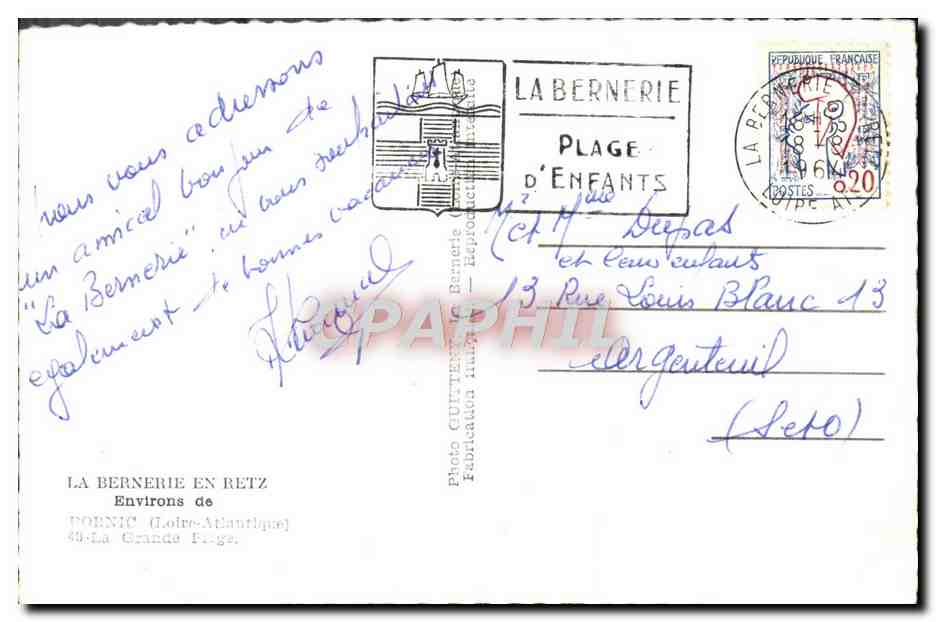 nous vous adressons
un amical bonjour de
"La Bernerie". en vous souhaitant
également de bonnes vacances
LA BERNERIE
PLAGE
D'ENFANTS
REPUBLIQUE FRANÇAISE
POSTES 0,20
LA BERNERIE EN RETZ
LOIRE ATL
18 H
8 - 8
1964
Mr et Mme Dupas
et leurs enfants
13 Rue Louis Blanc 13
Argenteuil
(S et O)
CPAPHIL
Photo GUITTENY La Bernerie
Fabrication française — Reproduction interdite
LA BERNERIE EN RETZ
Environs de
PORNIC (Loire-Atlantique)
La Grande Plage.